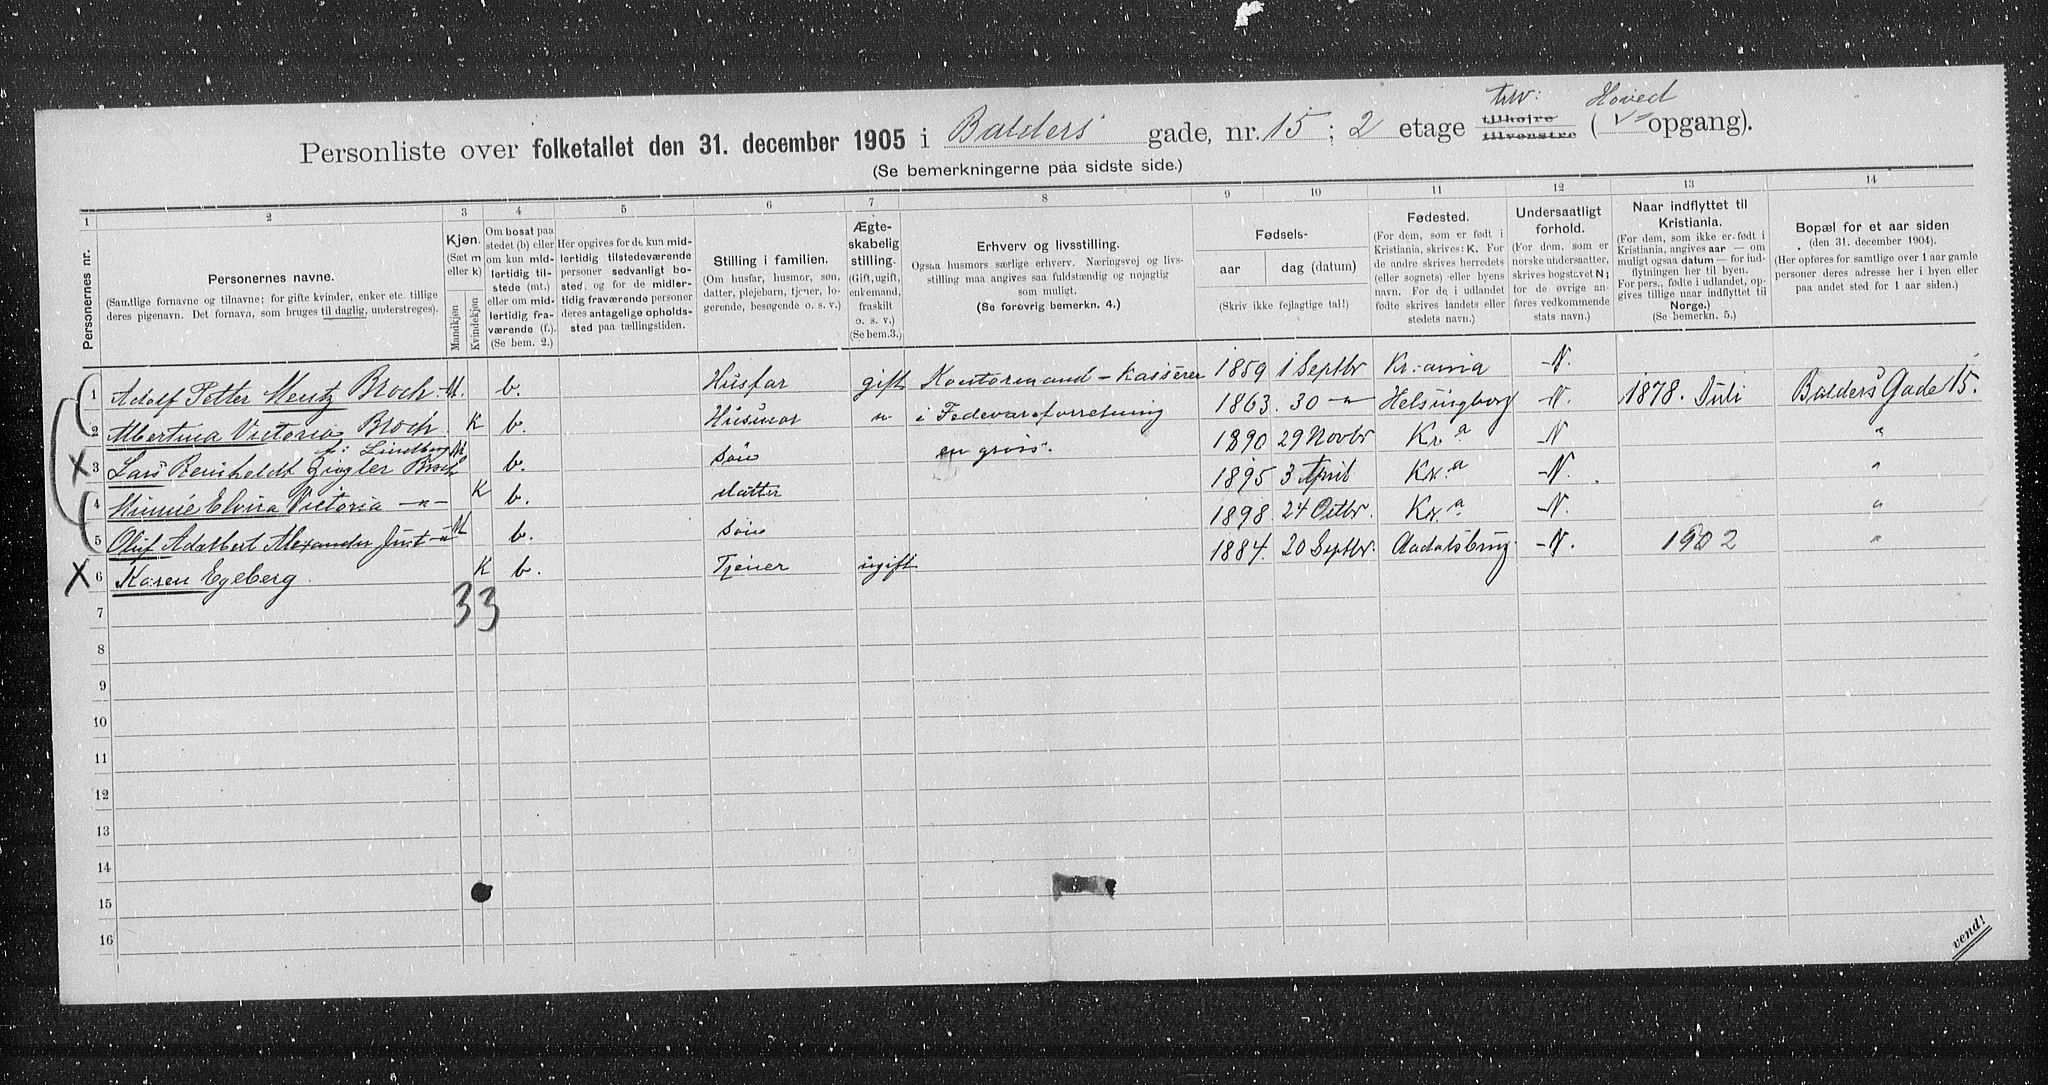 Personliste over folketallet den 31. december 1905 i Balders' gade, nr. 15; 2 etage tilhøjre tilvenstre tilv: (Hoved opgang).
(Se bemerkningerne paa sidste side.)
1 2 3 4 5 6 7 8 9 10 11 12 13 14
Personernes nr.
Personernes navne.
(Samtlige fornavne og tilnavne; for gifte kvinder, enker etc. tillige
deres pigenavn. Det fornavn, som bruges til daglig, understreges).
Kjøn.
(Sæt m
eller k)
Mandkjøn
Kvindekjøn
Om bosat paa
stedet (b) eller
om kun mid-
lertidig til-
stede (mt.)
eller om mid-
lertidig fra-
værende (f.).
(Se bem. 2.)
Her opgives for de kun mid-
lertidig tilstedeværende
personer sedvanligt bo-
sted, og for de midler-
tidig fraværende personer
deres antagelige opholds-
sted paa tællingstiden.
Stilling i familien.
(Om husfar, husmor, søn,
datter, plejebarn, tjener, lo-
gerende, besøgende o. s. v.)
Ægte-
skabelig
stilling.
(Gift, ugift,
enkemand,
fraskilt
o. s. v.)
(Se bem.3.)
Erhverv og livsstilling.
Ogsaa husmors særlige erhverv. Næringsvej og livs-
stilling maa angives saa fuldstændig og nøjagtig
som muligt.
(Se forøvrig bemerkn. 4.)
Fødsels-
aar
dag (datum)
(Skriv ikke fejlagtige tal!)
Fødested.
(For dem, som er født i
Kristiania, skrives: K. For
de andre skrives herredets
(eller sognets) eller byens
navn. For de i udlandet
fødte skrives landets eller
stedets navn.)
Undersaatligt
forhold.
(For dem, som er
norske undersaatter,
skrives bogstavet N;
for de øvrige an-
føres vedkommende
stats navn.)
Naar indflyttet til
Kristiania.
(For dem, som ikke er født i
Kristiania, angives aar — om
muligt ogsaa datum — for ind-
flytningen her til byen.
For pers., fødte i udlandet, op-
gives tillige naar indflyttet til
Norge.)
(Se bemerkn. 5.)
Bopæl for et aar siden
(den 31. december 1904).
(Her opføres for samtlige over 1 aar gamle
personer deres adresse her i byen eller
paa andet sted for 1 aar siden.)
1 Adolf Petter Mentz Broch. M. b. Husfar gift Kontormand – Kasserer 1859 1 Septbr Kr:ania –N.
2 Albertina Victoria Broch f: Lindberg K b. Husmor " i Fedevareforretning 1863. 30 –"– Helsingborg –N. 1878. Juli Balders Gade 15.
X 3 Lars Reinholdt Ziegler Broch M b. Søn en gros. 1890 29 Novbr Kr.a –N "
4 Minnie Elvira Victoria –"– K b. datter 1895 3 April Kr.a –N. "
5 Oluf Adalbert Alexander Just –"– M b. Søn 1898. 24 Octbr. Kr.a –N. "
X 6 Karen Egeberg. K b. Tjener ugift 1884. 20 Septbr. Aadalsbrug. –N. 1902 "
7 3 3
8
9
10
11
12
13
14
15
16
vend!